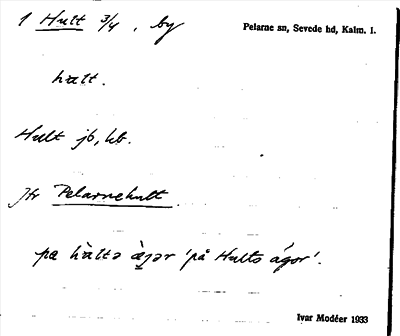 1 Hult 3/4, by
Pelarne sn, Sevede hd, Kalm. l.
hält.
Hult jb, kb.
Jfr Pelarnehult
pæ hältə ä̀ɡər 'på Hults ägor'.
Ivar Modéer 1933